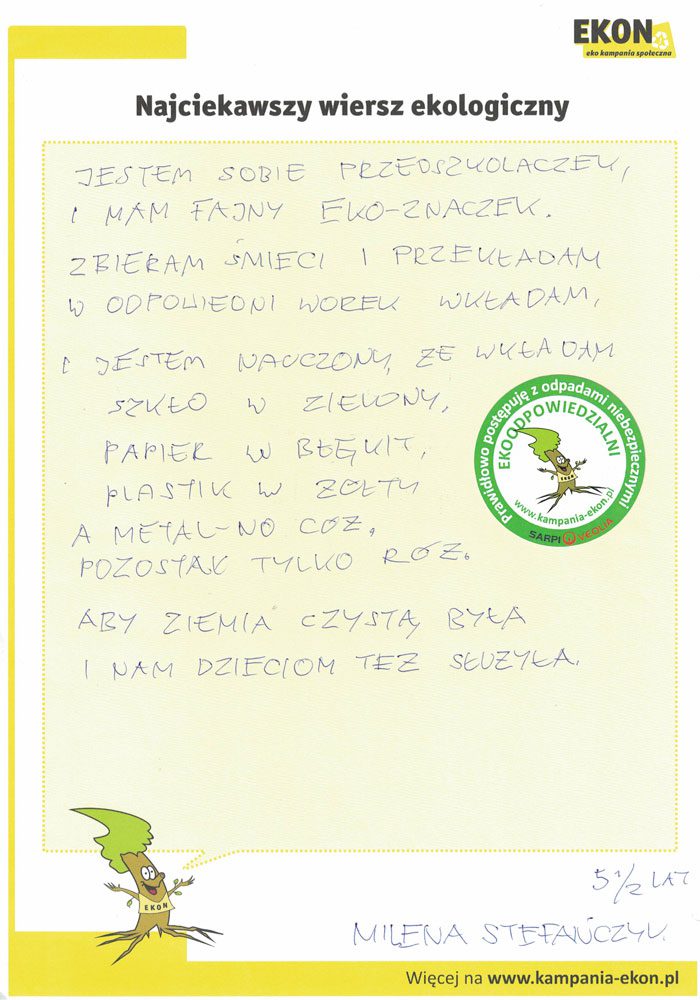 EKON
eko kampania społeczna
Najciekawszy wiersz ekologiczny
JESTEM SOBIE PRZEDSZKOLACZEK,
I MAM FAJNY EKO-ZNACZEK.
ZBIERAM ŚMIECI I PRZEKŁADAM
W ODPOWIEDNI WOREK WKŁADAM,
I JESTEM NAUCZONY, ZE WKŁADAM
SZKŁO W ZIELONY,
PAPIER W BŁĘKIT,
PLASTIK W ŻÓŁTY
A METAL-NO CÓŻ,
POZOSTAK TYLKO RÓŻ.
ABY ZIEMIA CZYSTĄ BYŁA
I NAM DZIECIOM TEŻ SŁUŻYŁA.
Prawidłowo postępuję z odpadami niebezpiecznymi
EKOODPOWIEDZIALNI
EKON
www.kampania-ekon.pl
SARPI VEOLIA
EKON
5 1/2 LAT
MILENA STEFAŃCZYK.
Więcej na www.kampania-ekon.pl